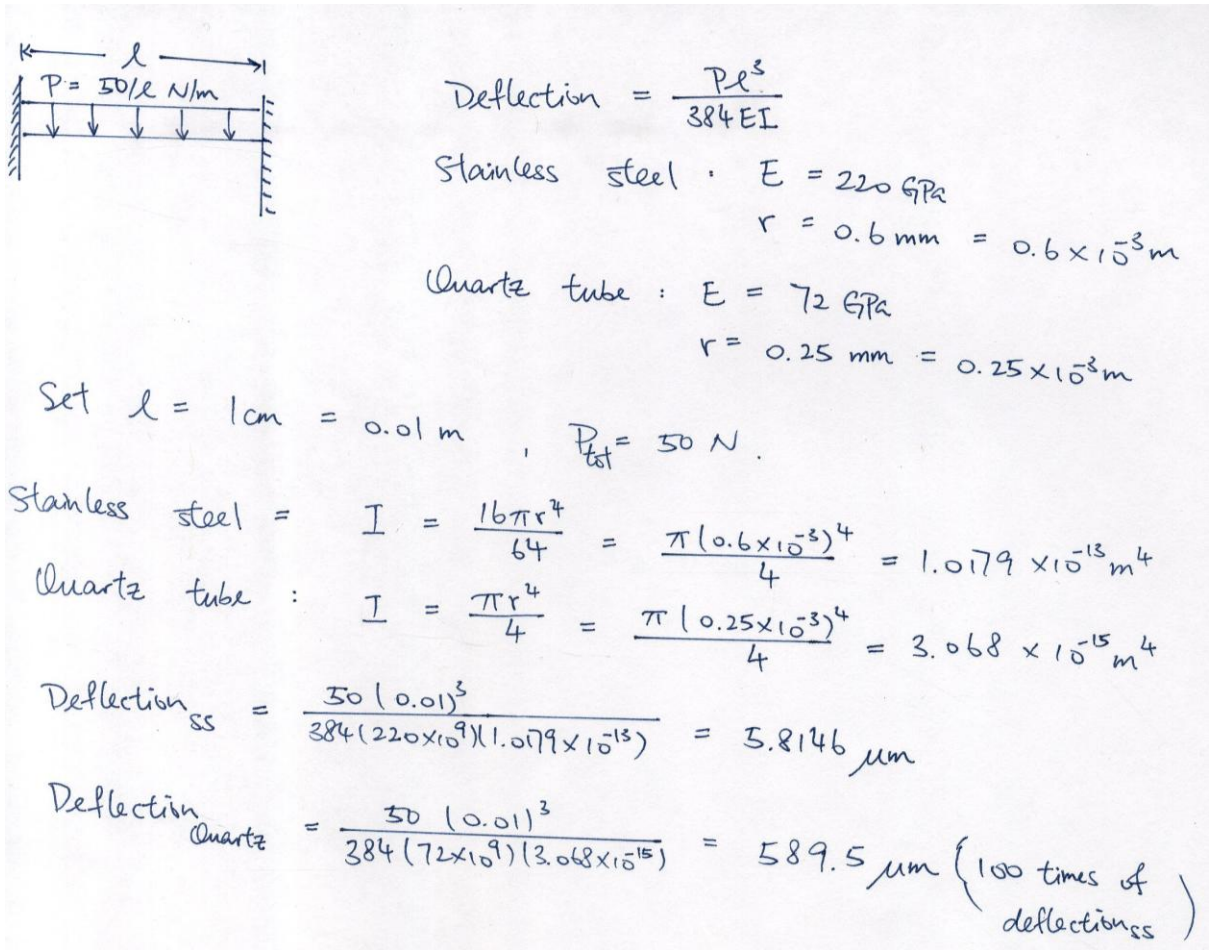 l
P = 50/l N/m
Deflection = Pl³/384EI
Stainless steel : E = 220 GPa
r = 0.6 mm = 0.6 × 10⁻³ m
Quartz tube : E = 72 GPa
r = 0.25 mm = 0.25 × 10⁻³ m
Set l = 1 cm = 0.01 m , P_tot = 50 N.
Stainless steel = I = 16πr⁴/64 = π(0.6×10⁻³)⁴/4 = 1.0179 × 10⁻¹³ m⁴
Quartz tube : I = πr⁴/4 = π(0.25×10⁻³)⁴/4 = 3.068 × 10⁻¹⁵ m⁴
Deflection_ss = 50(0.01)³/384(220×10⁹)(1.0179×10⁻¹³) = 5.8146 μm
Deflection_Quartz = 50(0.01)³/384(72×10⁹)(3.068×10⁻¹⁵) = 589.5 μm (100 times of
deflection_ss)